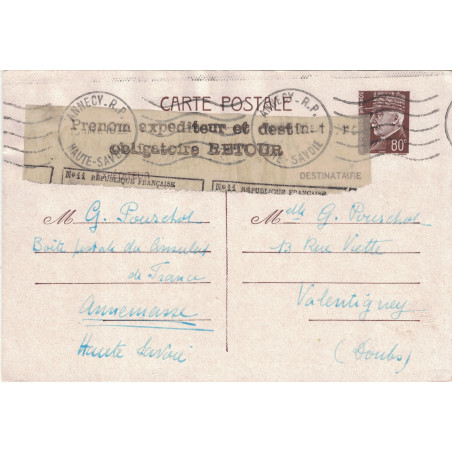 CARTE POSTALE
ANNECY-R.P.
HAUTE-SAVOIE
ANNECY-R.P.
HAUTE-SAVOIE
80c
Prenom expediteur et destinat r
obligatoire RETOUR
DESTINATAIRE
No=11 RÉPUBLIQUE FRANÇAISE
No=11 RÉPUBLIQUE FRANÇAISE
M G. Pourchot
Boîte postale du Consulat
de France
Annemasse
Haute Savoie
Melle G. Pourchot
13 Rue Viette
Valentigney
(Doubs)